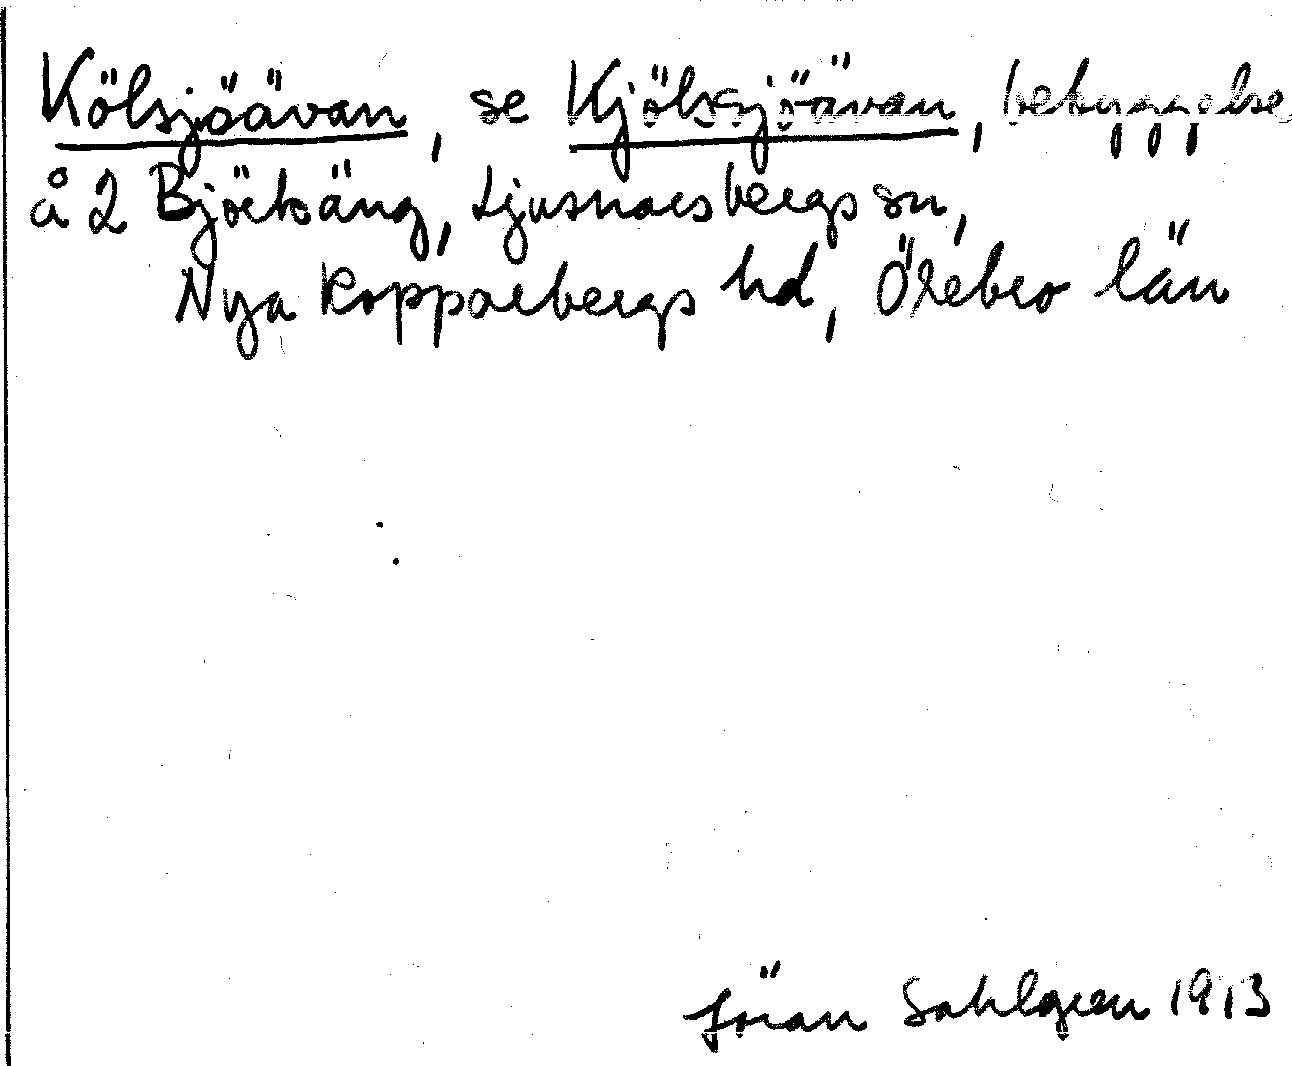 Kölsjöävan, se Kjölsjöävan, bebyggelse
å 2 Björkäng, Ljusnarsbergs sn,
Nya Kopparbergs hd, Örebro län
Jöran Sahlgren 1913